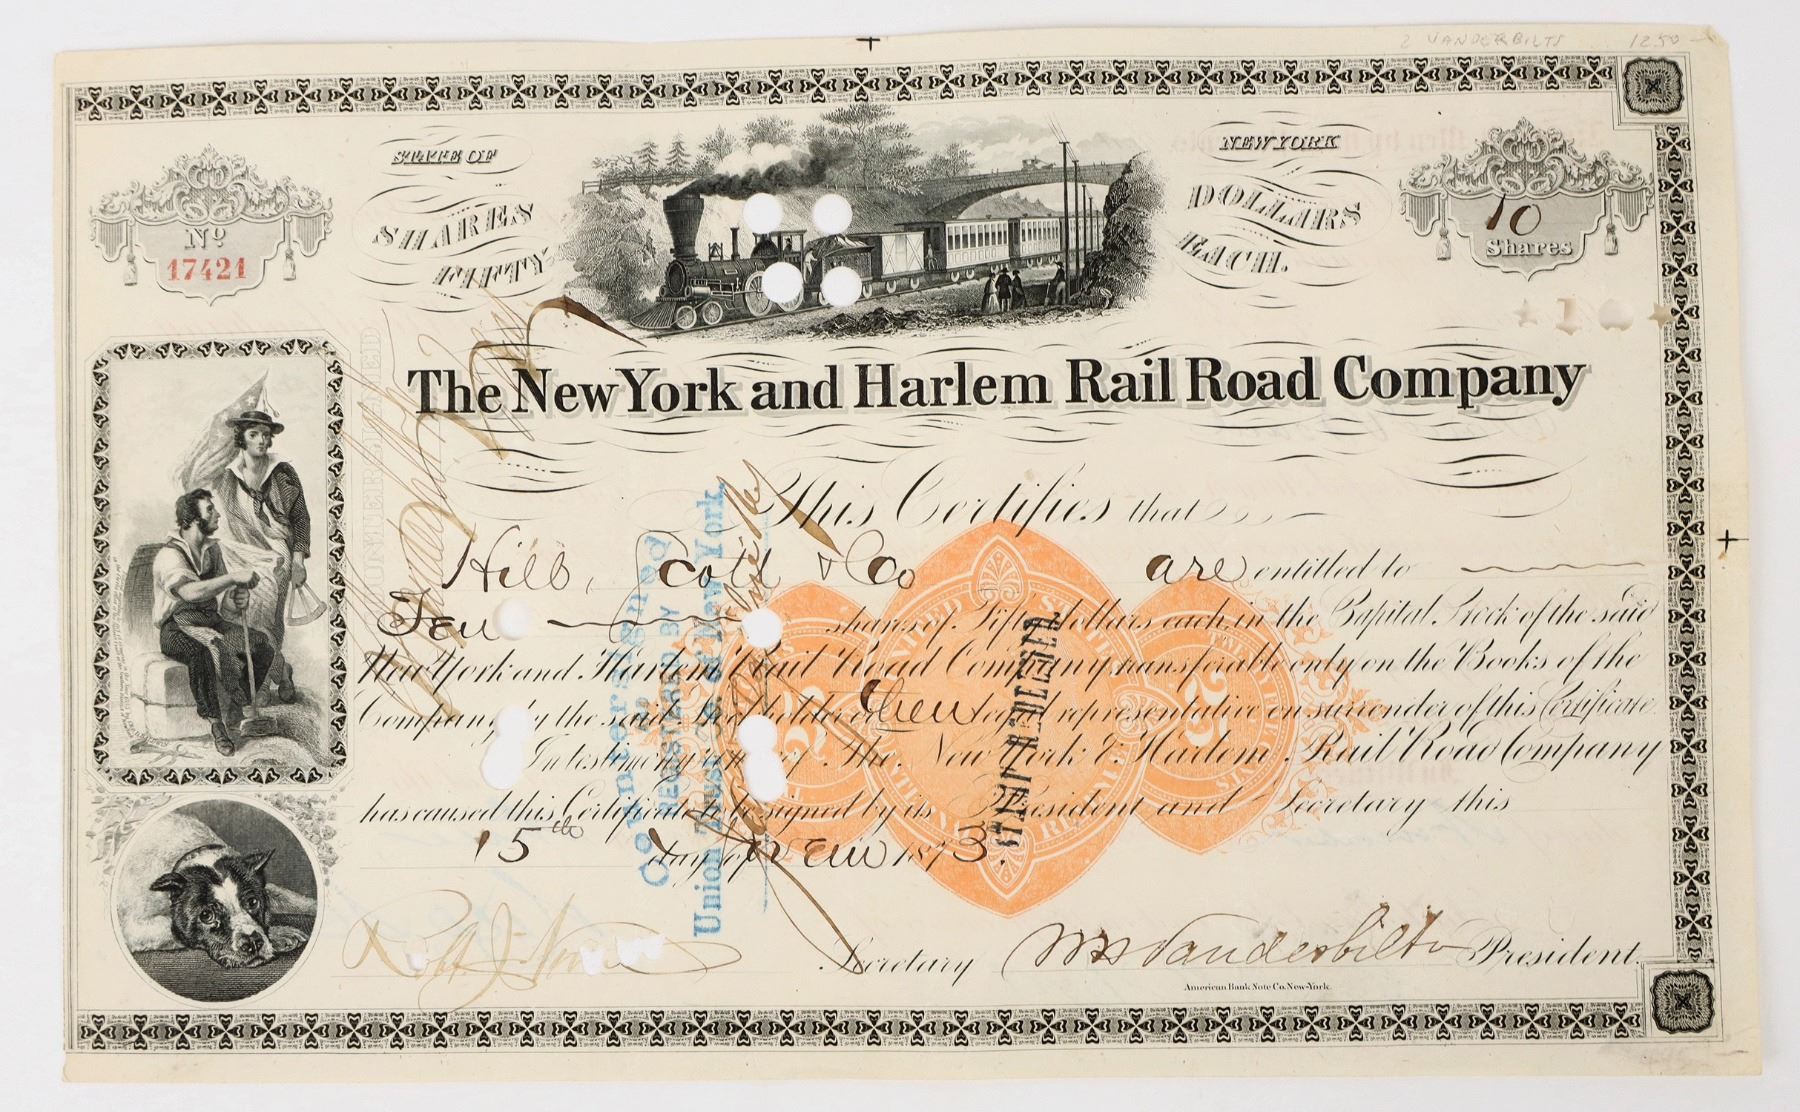 2 VANDERBILTS 1250
STATE OF
NEW YORK
SHARES
DOLLARS
FIFTY
EACH.
Nº
17421
10
Shares
The New York and Harlem Rail Road Company
COUNTERSIGNED
This Certifies that
Hill, Scott & Co are entitled to
Ten shares of Fifty dollars each in the Capital Stock of the said
New York and Harlem Rail Road Company transferable only on the Books of the
Company by the said Stockholder or their legal representative on surrender of this Certificate.
In testimony whereof The New York & Harlem Rail Road Company
has caused this Certificate to be signed by its President and Secretary this
15th day of 1873.
Countersigned
& REGISTERED BY
Union Trust Co. of New York.
STAMP REDEEMED
UNITED STATES
25
25
Secretary
Wm H Vanderbilt President.
American Bank Note Co. New-York.